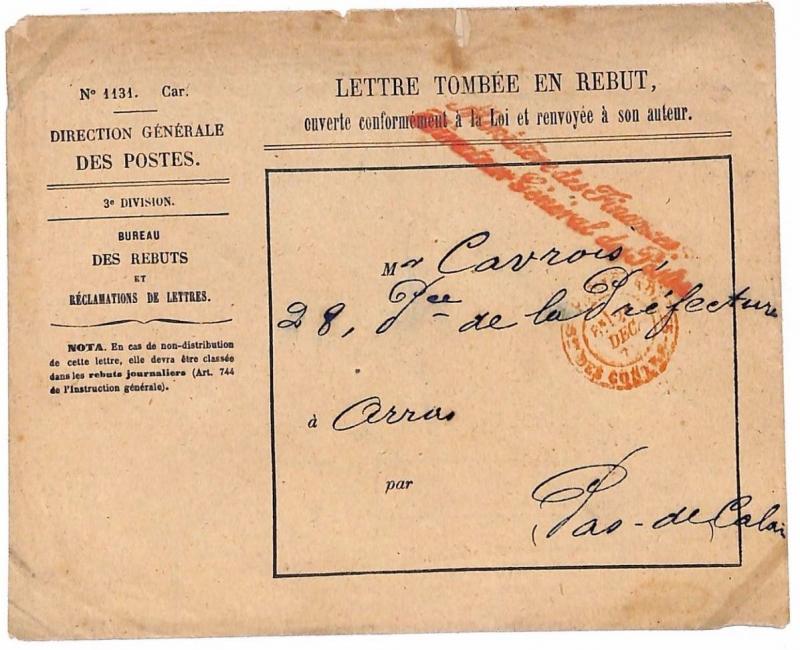 N° 1131. Car.
DIRECTION GÉNÉRALE
DES POSTES.
3e DIVISION.
BUREAU
DES REBUTS
ET
RÉCLAMATIONS DE LETTRES.
NOTA. En cas de non-distribution
de cette lettre, elle devra être classée
dans les rebuts journaliers (Art. 744
de l'Instruction générale).
LETTRE TOMBÉE EN REBUT,
ouverte conformément à la Loi et renvoyée à son auteur.
des Finances
Général des Postes
Mr Cavrois,
28, Pce de la Préfecture
DEC.
à Arras
par
Pas-de-Calais